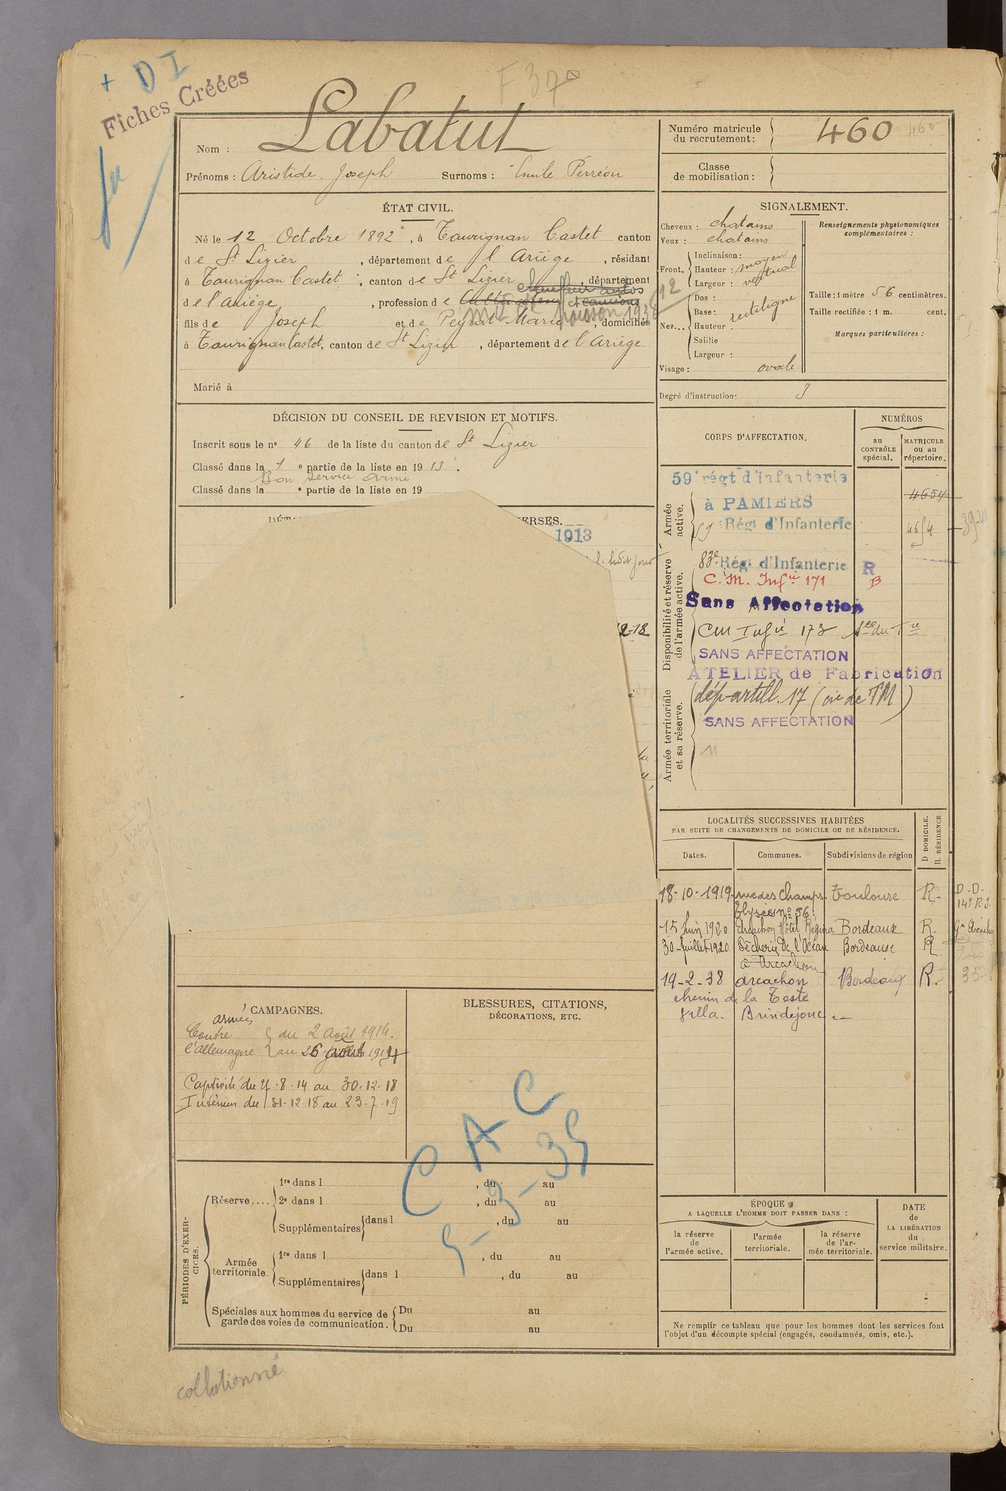 + D I
Fiches Créées
F 37
Nom : Labatut
Prénoms : Aristide Joseph Surnoms :
Numéro matricule du recrutement: 460 460
Classe de mobilisation :
ÉTAT CIVIL.
Né le 12 Octobre 1892, à Taurignan Castet canton
de St Lizier, département de l'Ariège, résidant
à Taurignan Castet, canton de St Lizier, département
de l'Ariège, profession de
fils de Joseph et de Peyrat Marie, domiciliés
à Taurignan Castet, canton de St Lizier, département de l'Ariège
Marié à
DÉCISION DU CONSEIL DE REVISION ET MOTIFS.
Inscrit sous le n° 46 de la liste du canton de St Lizier
Classé dans la 1e partie de la liste en 1913.
Bon service armé
Classé dans la e partie de la liste en 19
1913
SIGNALEMENT.
Cheveux : chatains
Yeux : chatains
Front. Inclinaison : moyen
Hauteur :
Largeur : vertical
Nez... Dos :
Base : rectiligne
Hauteur :
Saillie
Largeur :
Visage : ovale
Renseignements physionomiques complémentaires :
Taille : 1 mètre 56 centimètres.
Taille rectifiée : 1 m. cent.
Marques particulières :
Degré d'instruction: 3
CORPS D'AFFECTATION.
NUMÉROS
au CONTRÔLE spécial.
MATRICULE ou au répertoire.
Armée active.
59e régt d'infanterie
à PAMIERS
4654
59 Régt d'Infanterie
4654
Disponibilité et réserve de l'armée active.
83e Régt d'Infanterie R
C. M. Infie 171 B
Sans Affectation
CM Infie 173
SANS AFFECTATION
ATELIER de Fabrication
Armée territoriale et sa réserve.
dép artill. 17 (cie de TM)
SANS AFFECTATION
LOCALITÉS SUCCESSIVES HABITÉES
PAR SUITE DE CHANGEMENTS DE DOMICILE OU DE RÉSIDENCE.
Dates. Communes. Subdivisions de région D. DOMICILE. R. RÉSIDENCE
18-10-1919 rue des Champs Toulouse R.
Elysées n° 56
15 Juin 1920 Arcachon Hôtel Régina Bordeaux R.
30 Juillet 1920 Pêcherie de l'Océan Bordeaux R.
à Arcachon
19-2-38 Arcachon Bordeaux R.
chemin de la Teste
Villa. Brindejonc
CAMPAGNES.
Contre l'Allemagne du 2 Août 1914.
Captivité du 27-8-14 au 30-12-18
Intérieur du 31-12-18 au 23-7-19
BLESSURES, CITATIONS, DÉCORATIONS, ETC.
C A C
5-3-35
PÉRIODES D'EXERCICES.
Réserve.... 1re dans l , du au
2e dans l , du au
Supplémentaires dans l , du au
Armée territoriale. 1re dans l , du au
Supplémentaires dans l , du au
Spéciales aux hommes du service de garde des voies de communication. Du au
Du au
ÉPOQUE
A LAQUELLE L'HOMME DOIT PASSER DANS :
la réserve de l'armée active.
l'armée territoriale.
la réserve de l'armée territoriale.
DATE de LA LIBÉRATION du service militaire.
Ne remplir ce tableau que pour les hommes dont les services font
l'objet d'un décompte spécial (engagés, condamnés, omis, etc.).
collationné